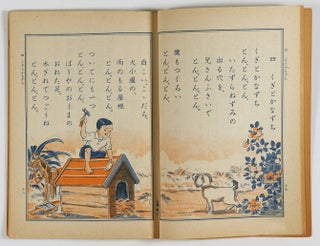 四 くぎとかなずち
くぎとかなずち
とんとん、とん。
いたずらねずみの
出る穴を、
兄さんふさいで
とんとん、とん。
僕もつくろい
とんとん、とん。
白こい、こい、だろ、
犬小屋の、
雨のもる屋根
とんとん、とん。
ついでにも一つ
とんとん、とん。
ばうやのおうまの
おれた足、
木ぎれでつぎね
とんとん、とん。